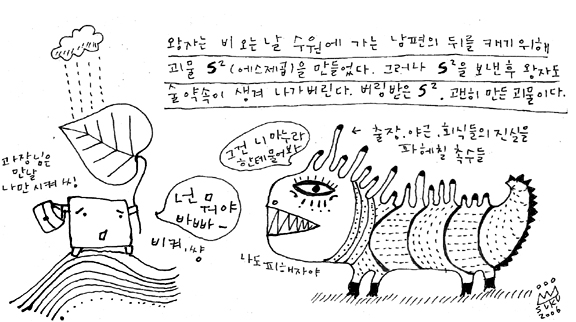 왕자는 비 오는 날 수원에 가는 남편의 뒤를 캐기위해
괴물 S²(에스제곱)을 만들었다. 그러나 S²을 보낸 후 왕자도
술약속이 생겨 나가버린다. 버림받은 S². 괜히 만든 괴물이다.
그건 니 마누라
한테 물어봐
← 출장.야근.회식들의 진실을
파헤칠 촉수들
과장님은
만날
나만 시켜 씽
넌 뭐야
바빠—
비켜.썅
나도 피해자야
SUKU
2006